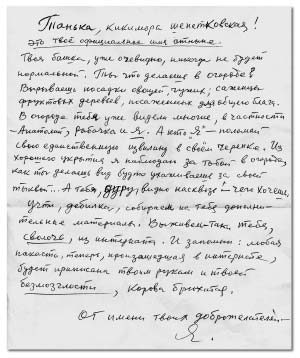 Танька, кикимора шенетковская!
это твоё официальное имя отныне.
Твоя башка, уже очевидно, никогда не будет
нормальной. Ты что делаешь в огороде?
Вырываешь посадки овощей, чужих, саженцы
фруктовых деревьев, посаженных для общего блага.
В огороде тебя уже видели многие, в частности
Анатолий, рабочка и я. А кто "Я" – поломай
свою единственную извилину в своём черепке. Из
хорошего укрытия я наблюдаю за тобой в огороде,
как ты делаешь вид будто ухаживаешь за своей
тыквой... А тебя, дуру, видно насквозь – чего хочешь.
Учти, дебилка, собираем на тебя дополни-
тельные материалы. Выживем-таки тебя,
сволочь, из интерната. И запомни: любая
пакость, теперь, произошедшая в интернате,
будет приписана твоим рукам и твоей
безмозглости, корова брыжитая.
От имени твоих доброжелателей –
Я.